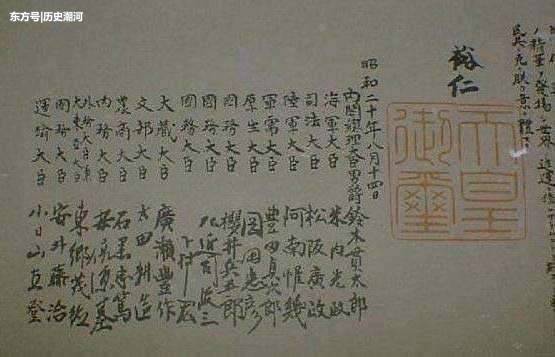 东方号|历史潮河
ノ精華ヲ發揚シ世界ノ進運
民其レ克ク朕カ意ヲ體セヨ
裕仁
天皇
御璽
昭和二十年八月十四日
内閣總理大臣男爵鈴木貫太郎
海軍大臣 米内光政
司法大臣 松阪廣政
陸軍大臣 阿南惟幾
軍需大臣 豊田貞次郎
厚生大臣 岡田忠彦
國務大臣 櫻井兵五郎
國務大臣 左近司政三
國務大臣 下村宏
大藏大臣 廣瀬豊作
文部大臣 太田耕造
農商大臣 石黒忠篤
内務大臣 安倍源基
外務大臣兼
大東亞大臣 東郷茂徳
國務大臣 安井藤治
運輸大臣 小日山直登